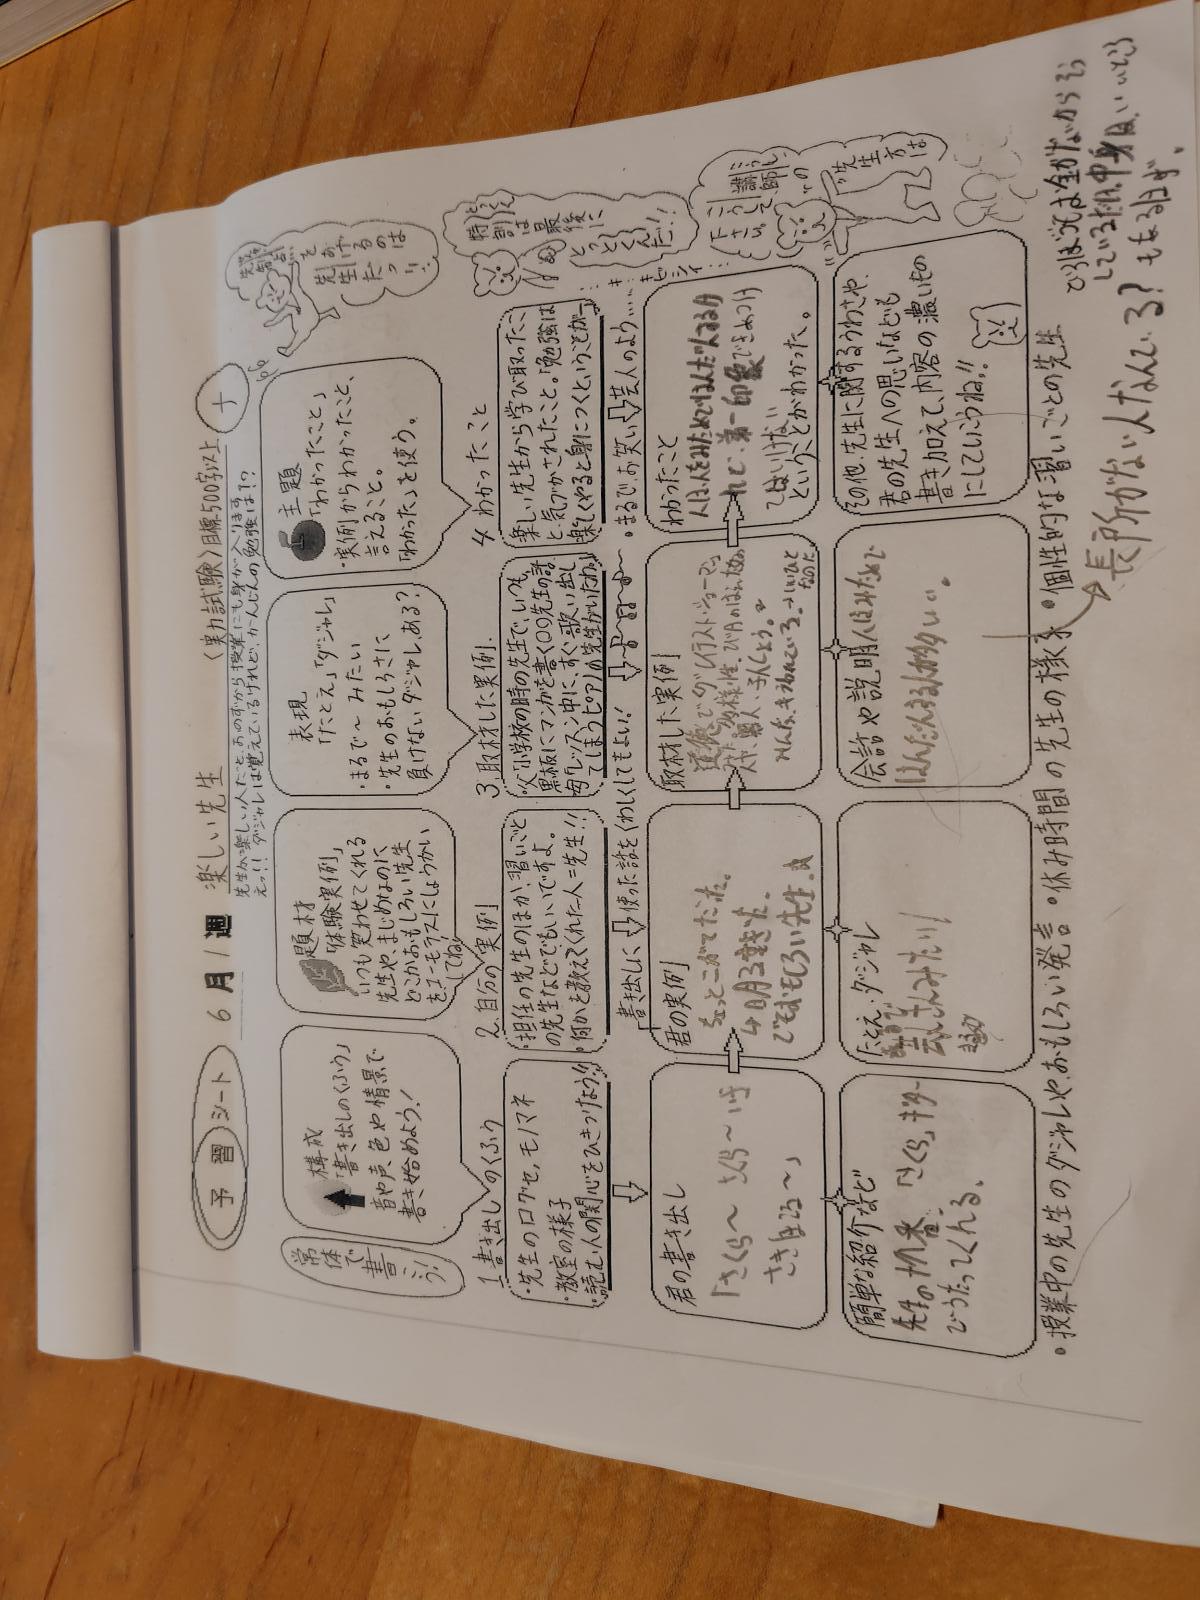 予習シート 6月1週 楽しい先生 〈実力試験〉目標500字以上
先生が楽しい人だと、おのずから授業にも身が入ります。
えっ!! ダジャレは覚えているけれど、かんじんの勉強は!?
常体で書こう!
構成
「書き出しのくふう」
音や声、色や情景で
書き始めよう!
題材
「体験実例」
いつも笑わせてくれる
先生や、まじめなのに
どこかおもしろい先生
をユーモラスにしょうかい
してね!
表現
「たとえ」「ダジャレ」
・まるで〜みたい
・先生のおもしろさに
負けないダジャレ、ある?
主題
「わかったこと」
・実例からわかったこと、
言えること。
「わかった」を使う。
1.書き出しのくふう
・先生の口グセ、モノマネ
・教室の様子
・読む人の関心をひきつけよう!!
2.自分の実例
・担任の先生のほか、習いごと
の先生などでもいいですよ。
・何かを教えてくれた人=先生!!
3.取材した実例
父「小学校の時の先生で、いつも
黒板にマンガを書く〇〇先生の話
母「レッスン中に、すぐ歌い出し
てしまうピアノの先生がいたわね
4.わかったこと
楽しい先生から学び取ったこ
と、気づかされたこと。「勉強は
楽しくやると身につくということが…
書き出しに使った話をくわしくしてもよい!
・まるで、お笑い芸人のよう……
君の書き出し
「さくら〜 さくら〜 いま
さきほこる〜」
君の実例
ちょっとこがてだった。
4日目でも驚きた。
でもおもしろい先生。
取材した実例
みんな
わかったこと
人は人をみためではんだんするが
れど、第一印象できめつけ
てはいけない
ということがわかった。
簡単な紹介など
先生の十八番、「さくら」をギター
でうたってくれる。
たとえ・ダジャレ
芸人みたい!
会話や説明 人はみためで
はんだんする人が多い。
その他、先生に関するうわさや、
君の先生への思いなども
書き加えて、内容の濃いもの
にしていこうね!!
・授業中の先生のダジャレや、おもしろい発言 ・休み時間の先生の様子 ・個性的な習いごとの先生
長所がない人だなんている?
している だれ 中身はいいところ
もあるはず。
先生を
特訓は最後に
とっとくんだ!!
先生方は
講師
下さい。